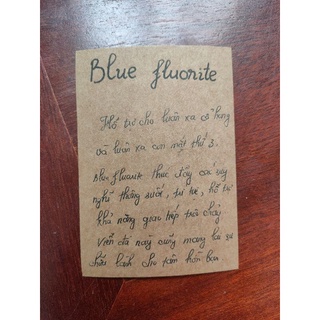 Blue fluorite
Hỗ trợ cho luân xa cổ họng
và luân xa con mắt thứ 3.
Blue fluorite thúc đẩy các suy
nghĩ thông suốt, hỗ trợ
khả năng giao tiếp trôi chảy
Viên đá này cũng mang lại sự
chữa lành cho tâm hồn bạn